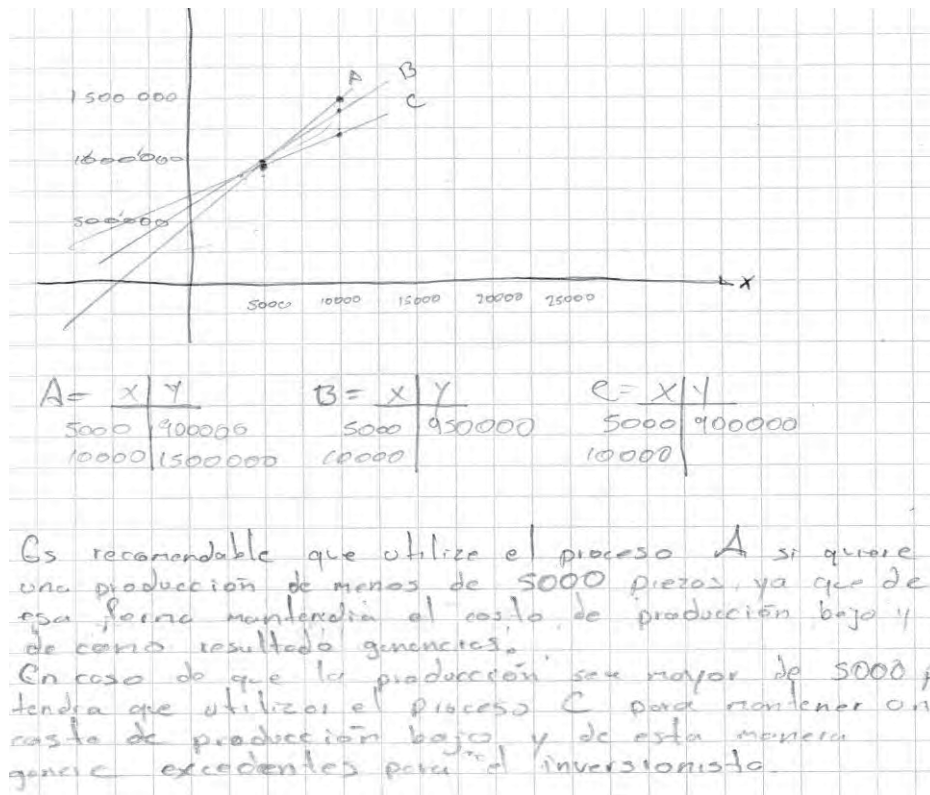 A
B
1 500 000
C
1000000
500000
X
5000 10000 15000 20000 25000
A= X Y B= X Y C= X Y
5000 900000 5000 950000 5000 900000
10000 1500000 10000 10000
Es recomendable que utilize el proceso A si quiere
una producción de menos de 5000 piezas ya que de
esa forma mantendria el costo de producción bajo y
de como resultado ganancias.
En caso de que la producción sea mayor de 5000
tendra que utilizar el proceso C para mantener un
costo de producción bajo y de esta manera
genere excedentes para el inversionista